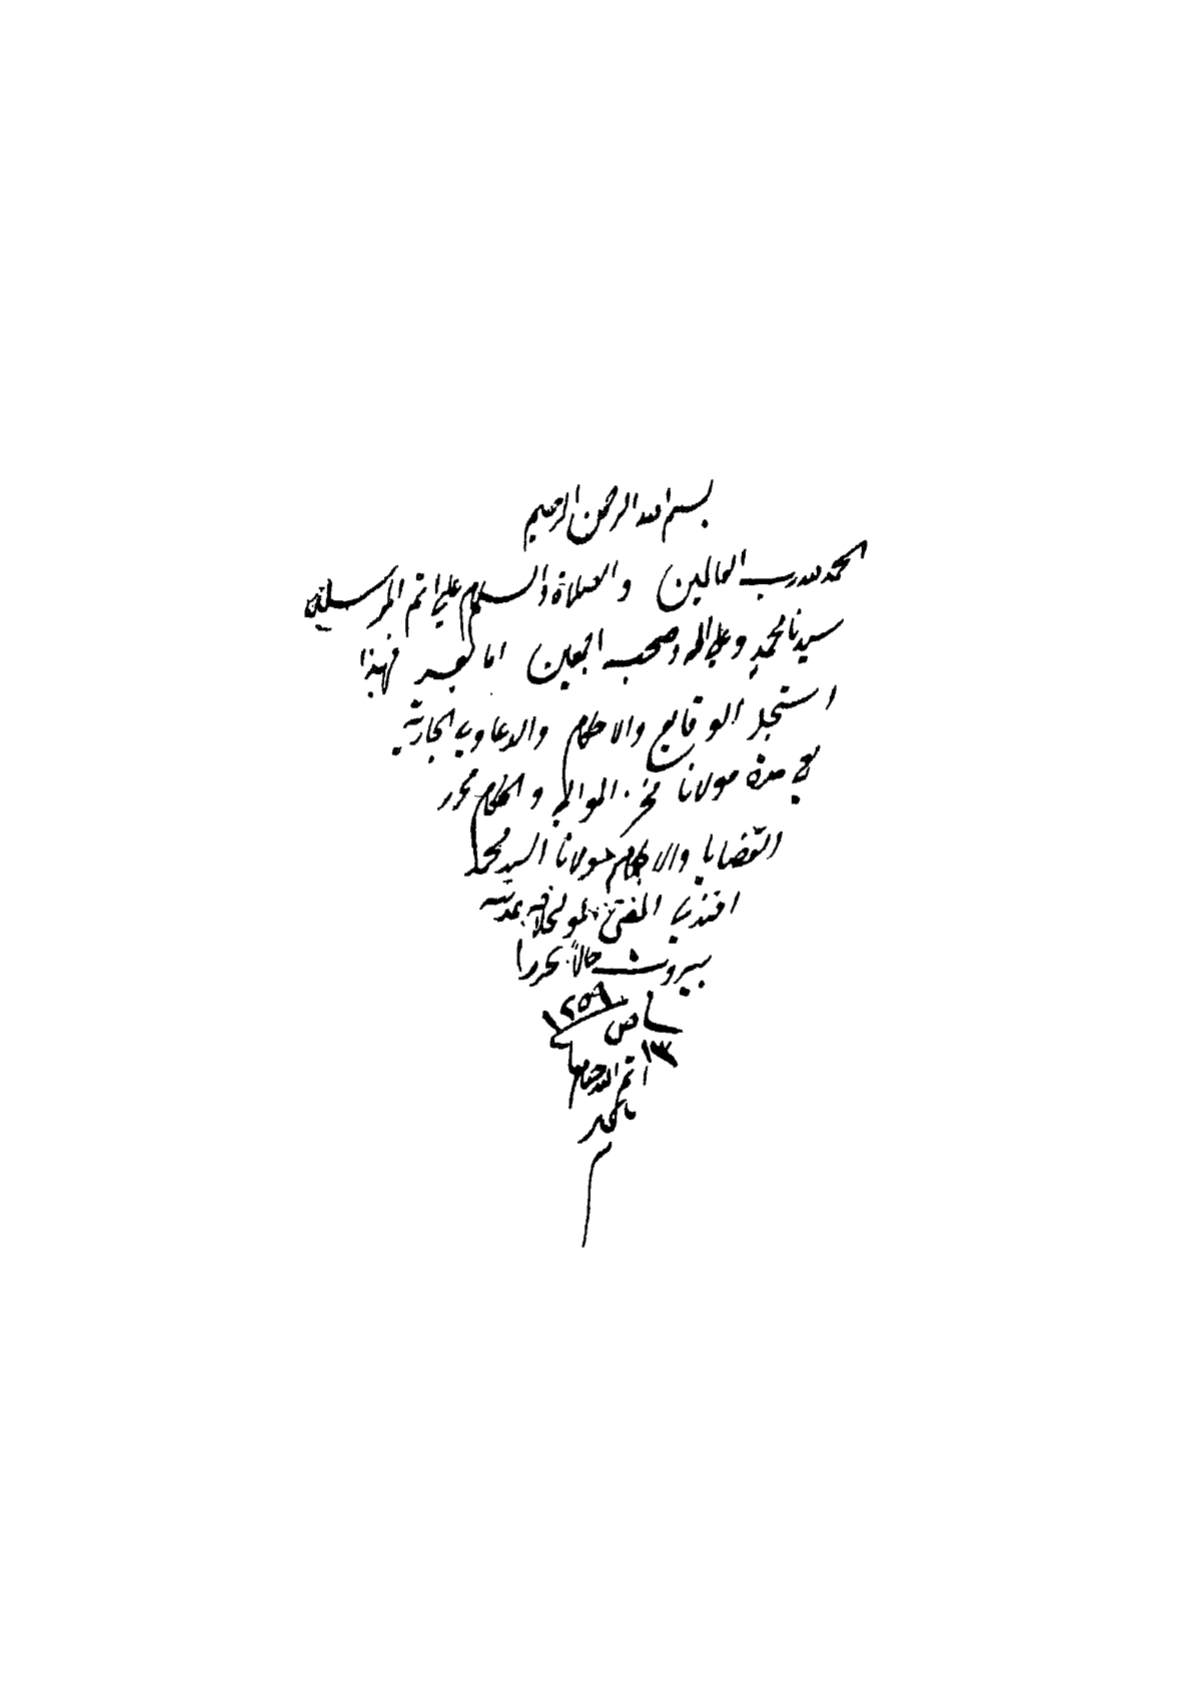 بسم الله الرحمن الرحيم
الحمد لله رب العالمين والصلاة والسلام على اتم المرسلين
سيدنا محمد وعلى اله وصحبه اجمعين اما بعد فهذا
اسجل الوقايع والاحكام والدعاوي الجارية
في مدة مولانا فخر الموالي والحكام محرر
القضايا والاحكام مولانا السيد محمد
افندي المفتي المولى خلافه بمدينة
بيروت حالا تحريرا
١٢٥٩
١٣
اتم الله ختامه
بالخير